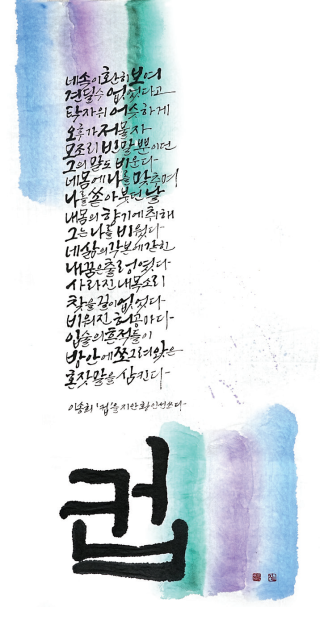 네 속이 환히 보여
견딜 수 없었다고
탁자 위 어슷하게
오후가 저물자
모조리 빈말뿐이던
그의 말도 비운다
네 몸에 나를 맞추며
나를 쏟아붓던 날
내 몸의 향기에 취해
그는 나를 비웠다
네 삶의 각본에 갇힌
내 꿈은 출렁였다
사라진 내 목소리
찾을 길이 없었다
비워진 허공마다
입술의 흔적들이
방안에 쪼그려 앉은
혼잣말을 삼킨다
이송희 '컵'을 지안 황선선 쓰다
컵